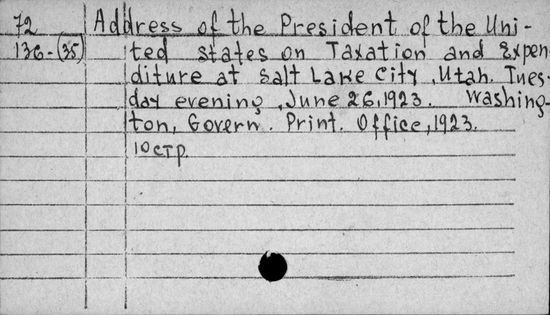 72 Address of the President of the Uni-
136-(35) ted States on Taxation and Expen
diture at Salt Lake City, Utah. Tues-
day evening, June 26, 1923. Washing-
ton, Govern. Print. Office, 1923.
10 стр.